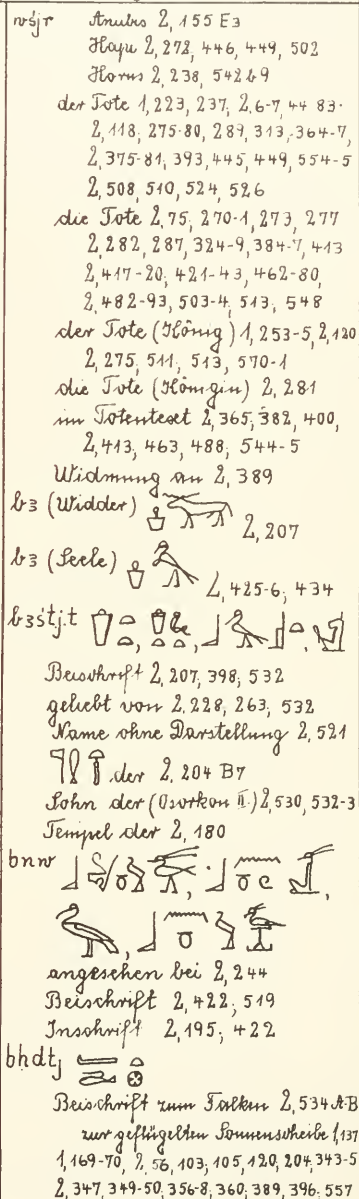 wśjr Anubis 2, 155 E3
Hapi 2, 272, 446, 449, 502
Horus 2, 238, 542 b9
der Tote 1, 223, 237, 2, 6-7, 44 83.
2, 118; 275-80, 289, 313, 364-7,
2, 375-81, 393, 445, 449, 554-5
2, 508, 510, 524, 526
die Tote 2, 75, 270-1, 273, 277
2, 282, 287, 324-9, 384-7, 413
2, 417-20; 421-43, 462-80,
2, 482-93, 503-4, 513; 548
der Tote (König) 1, 253-5, 2, 120
2, 275, 511; 513, 570-1
die Tote (Königin) 2, 281
im Totentext 2, 365, 382, 400,
2, 413, 463, 488; 544-5
Widmung an 2, 389
b3 (Widder) 2, 207
b3 (Seele) 2, 425-6; 434
b3śtj.t
Beischrift 2, 207, 398, 532
geliebt von 2, 228, 263, 532
Name ohne Darstellung 2, 521
der 2, 204 B7
Sohn der (Osorkon II.) 2, 530, 532-3
Tempel der 2, 180
bnw
angesehen bei 2, 244
Beischrift 2, 422; 519
Inschrift 2, 195; 422
bhdtj
Beischrift zum Falken 2, 534 A-B
zur geflügelten Sonnenscheibe 1, 137
1, 169-70, 2, 56, 103; 105, 120, 204, 343-5
2, 347, 349-50, 356-8, 360; 389, 396; 557